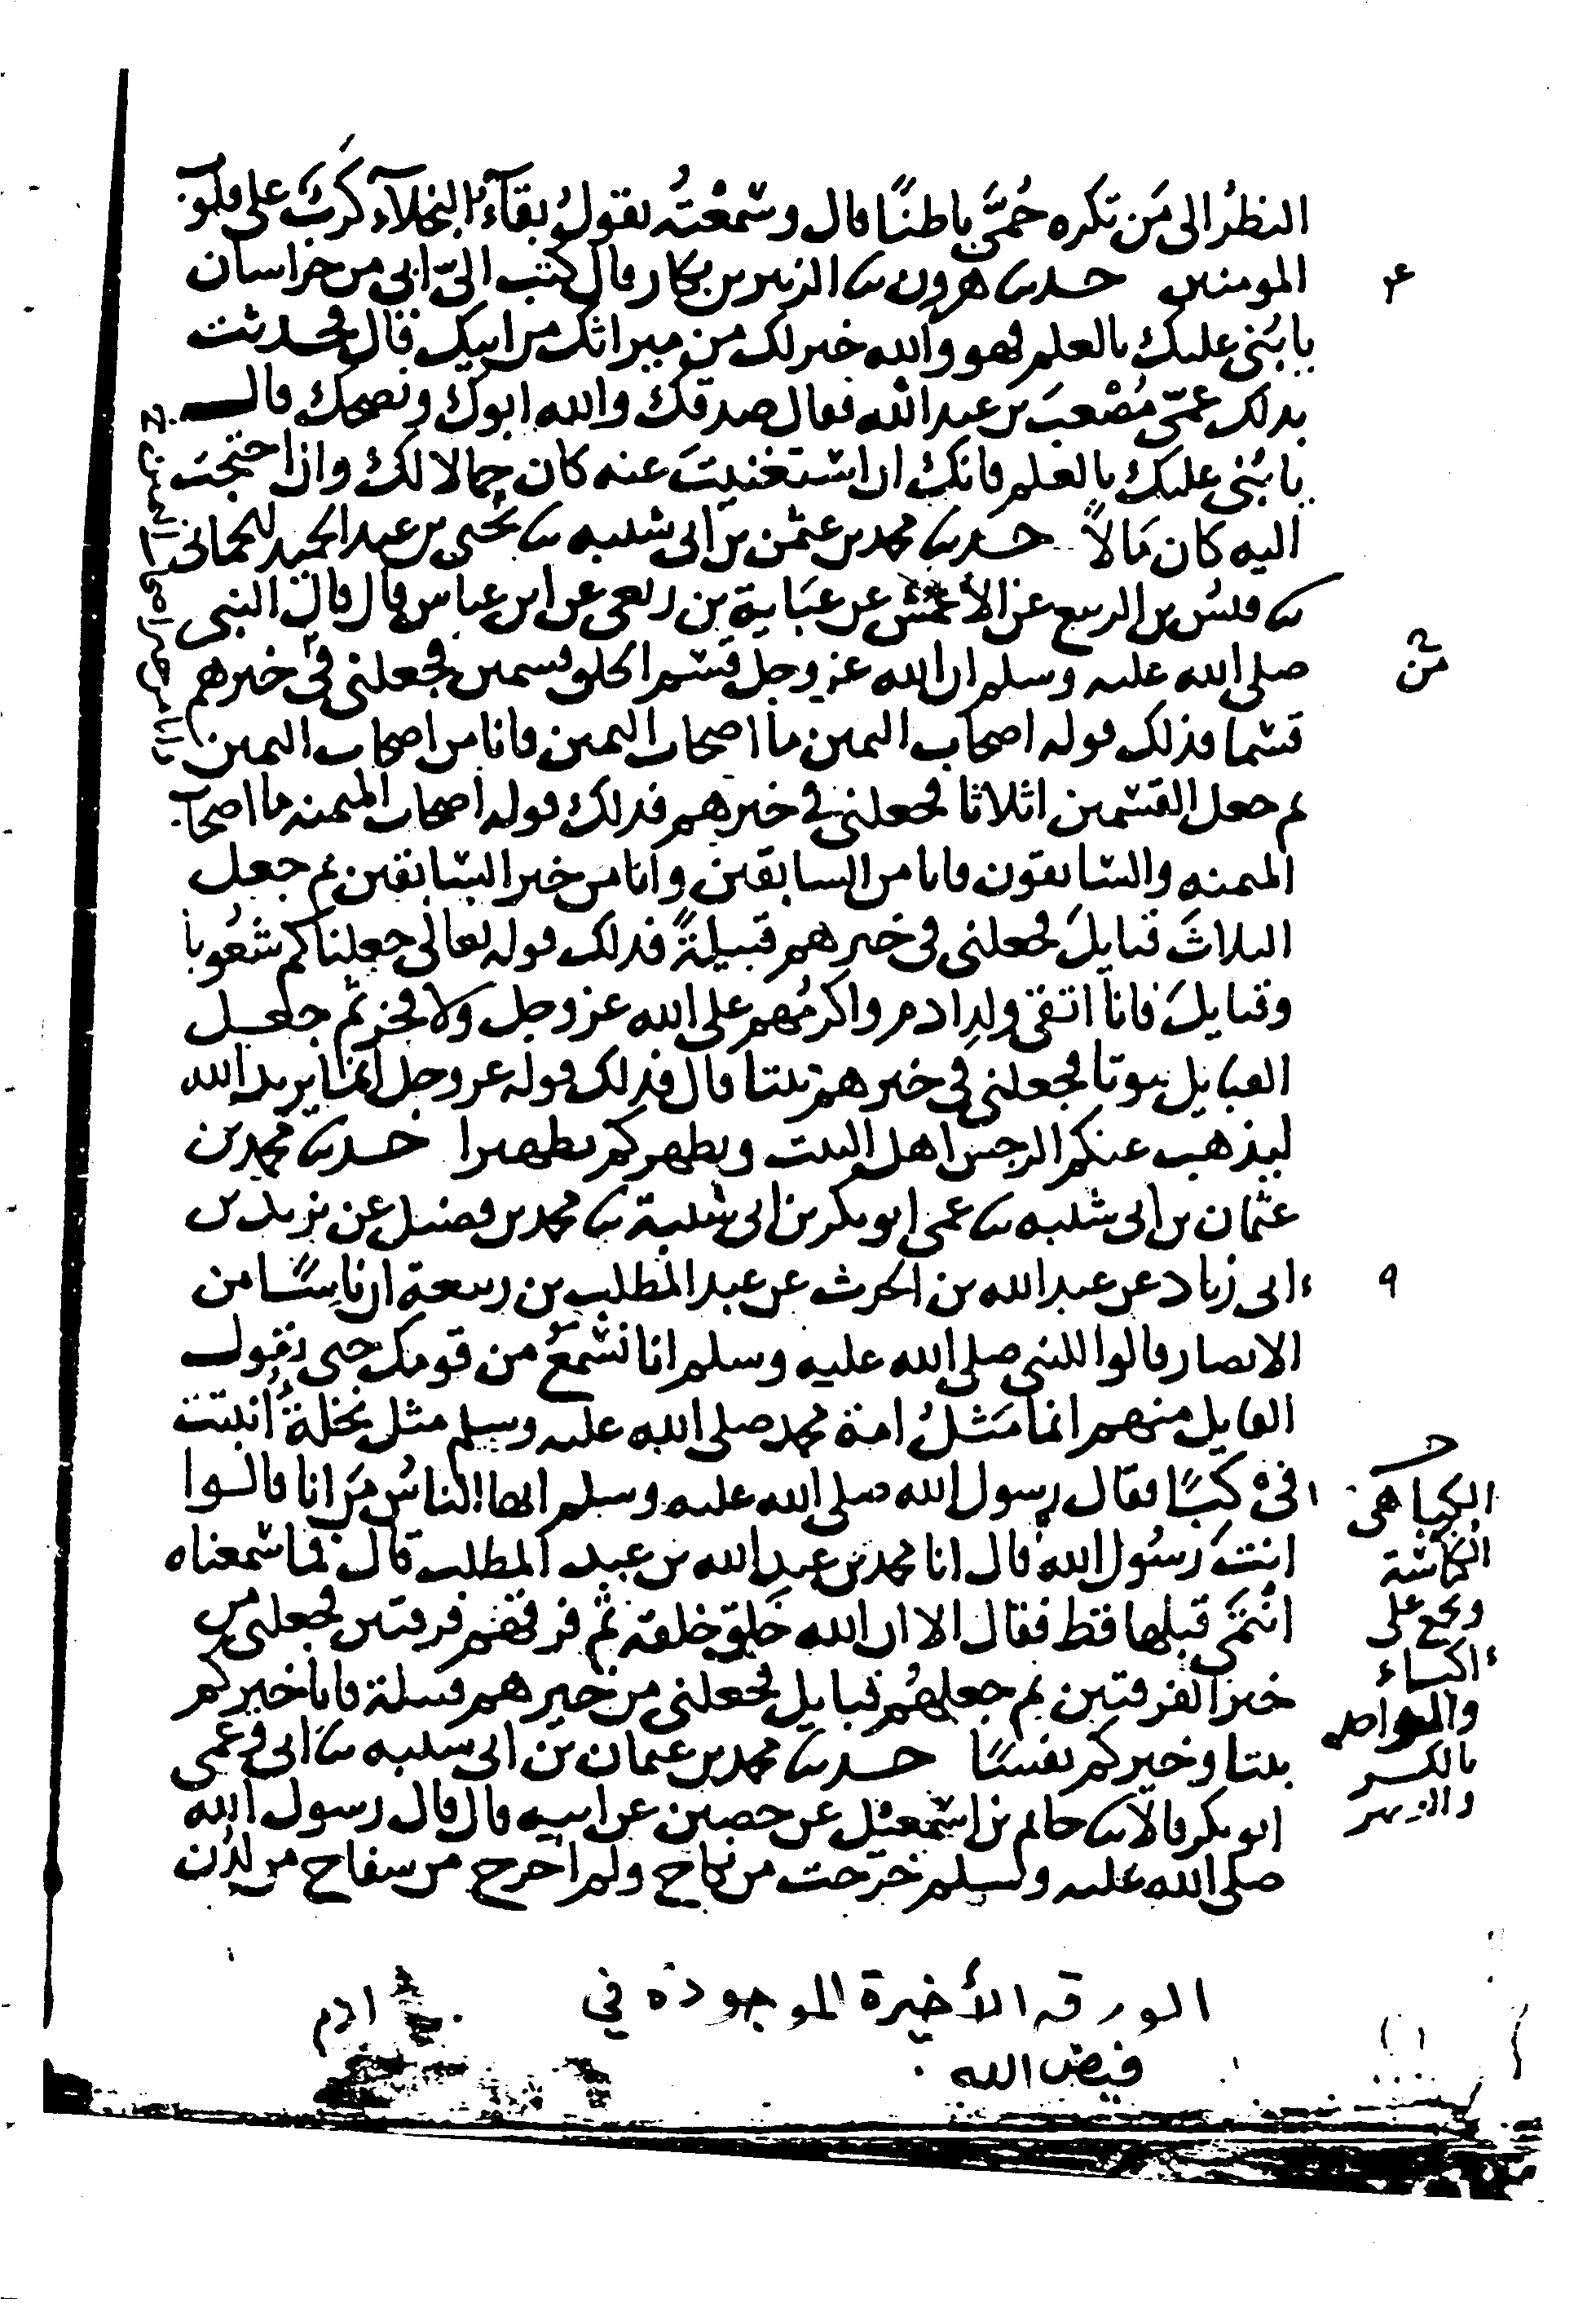 النظرُ الى مَن تكره حُمَّى باطنًا قال وسَمعْتُه يقولُ بقآءُ البخلآء كَرْبٌ على قلو
المومنين حدثنا هرون نا الزبير بن بكار قال كتب اليّ ابي من خراسان
يا بُنَي عليك بالعلم فهو والله خير لك من ميراثك من ابيك قال فحدثت
بذلك عمّي مُصْعَبَ بن عبد الله فقال صدقك والله ابوك ونصحك قال
يا بُنَي عليك بالعلم فانك ان استغنيتَ عنه كان جمالا لك وان احتجت
اليه كان مَالاً حدثنا محمد بن عثمن بن ابى شيبه نا يحيى بن عبد الحميد الحماني
نا قيسُ بن الربيع عن الأعمش عن عَبَاية بن ربعي عن ابن عباس قال قال النبي
صلى الله عليه وسلم ان الله عز وجل قسَم الخلق قسمين فجعلني في خيرهم
قسْما فذلك قوله اصحاب اليمين ما اصحاب اليمين فانا من اصحاب اليمين
ثم جعل القسْمين اثلاثا فجعلني في خيرهم فذلك قوله اصحاب الميمنه ما اصحا
الميمنه والسّابقون فانا من السابقين وانا من خير السّابقين ثم جعل
الثلاثَ قبايلَ فجعلني في خيرهم قبيلةً فذلك قوله تعالى جعلناكم شعُوبا
وقبايل فانا اتقى ولدِ ادم واكرمُهم على الله عز وجل ولا فخر ثم جعل
القبايل بيوتا فجعلني في خيرهم بيتا قال فذلك قوله عز وجل انما يريد الله
ليذهب عنكم الرجس اهل البيت ويطهركم تطهيرا حدثنا محمد بن
عثمان بن ابى شيبه نا عمي ابو بكر بن ابى شيبة نا محمد بن فضيل عن يزيد بن
ابى زياد عن عبد الله بن الحرث عن عبد المطلب بن ربيعة ان ناسًا من
الانصار قالوا للنبي صلى الله عليه وسلم انا نسْمعُ من قومك حتى يقول
القايل منهم انما مَثلُ امة محمد صلى الله عليه وسلم مثل نخلةٍ انبتت
في كِبًا فقال رسول الله صلى الله عليه وسلم ايها الناسُ مَن انا قالوا
انتَ رسُول الله قال انا محمد بن عبد الله بن عبد المطلب قال فما سمعناه
انتمَى قبلها قط فقال الا ان الله خَلق خلقه ثم فرقهم فرقتين فجعلني من
خير الفرقتين ثم جعلهُم قبايل فجعلني من خيرهم قبيلة فانا خيركم
بيتا وخيركم نفسًا حدثنا محمد بن عثمان بن ابى شيبه نا ابى وعمي
ابو بكر قالا نا حاتم بن اسْمعيْل عن حصين عن ابيه قال قال رسول الله
صلى الله عليه وسلم خرجت من نكاح ولم اخرج من سفاح من لدُن
ادم
من
الكبا هي
الكناسة
ويجمع على
اكباء
بالكسر
الورقه الأخيرة الموجوده في
فيض الله